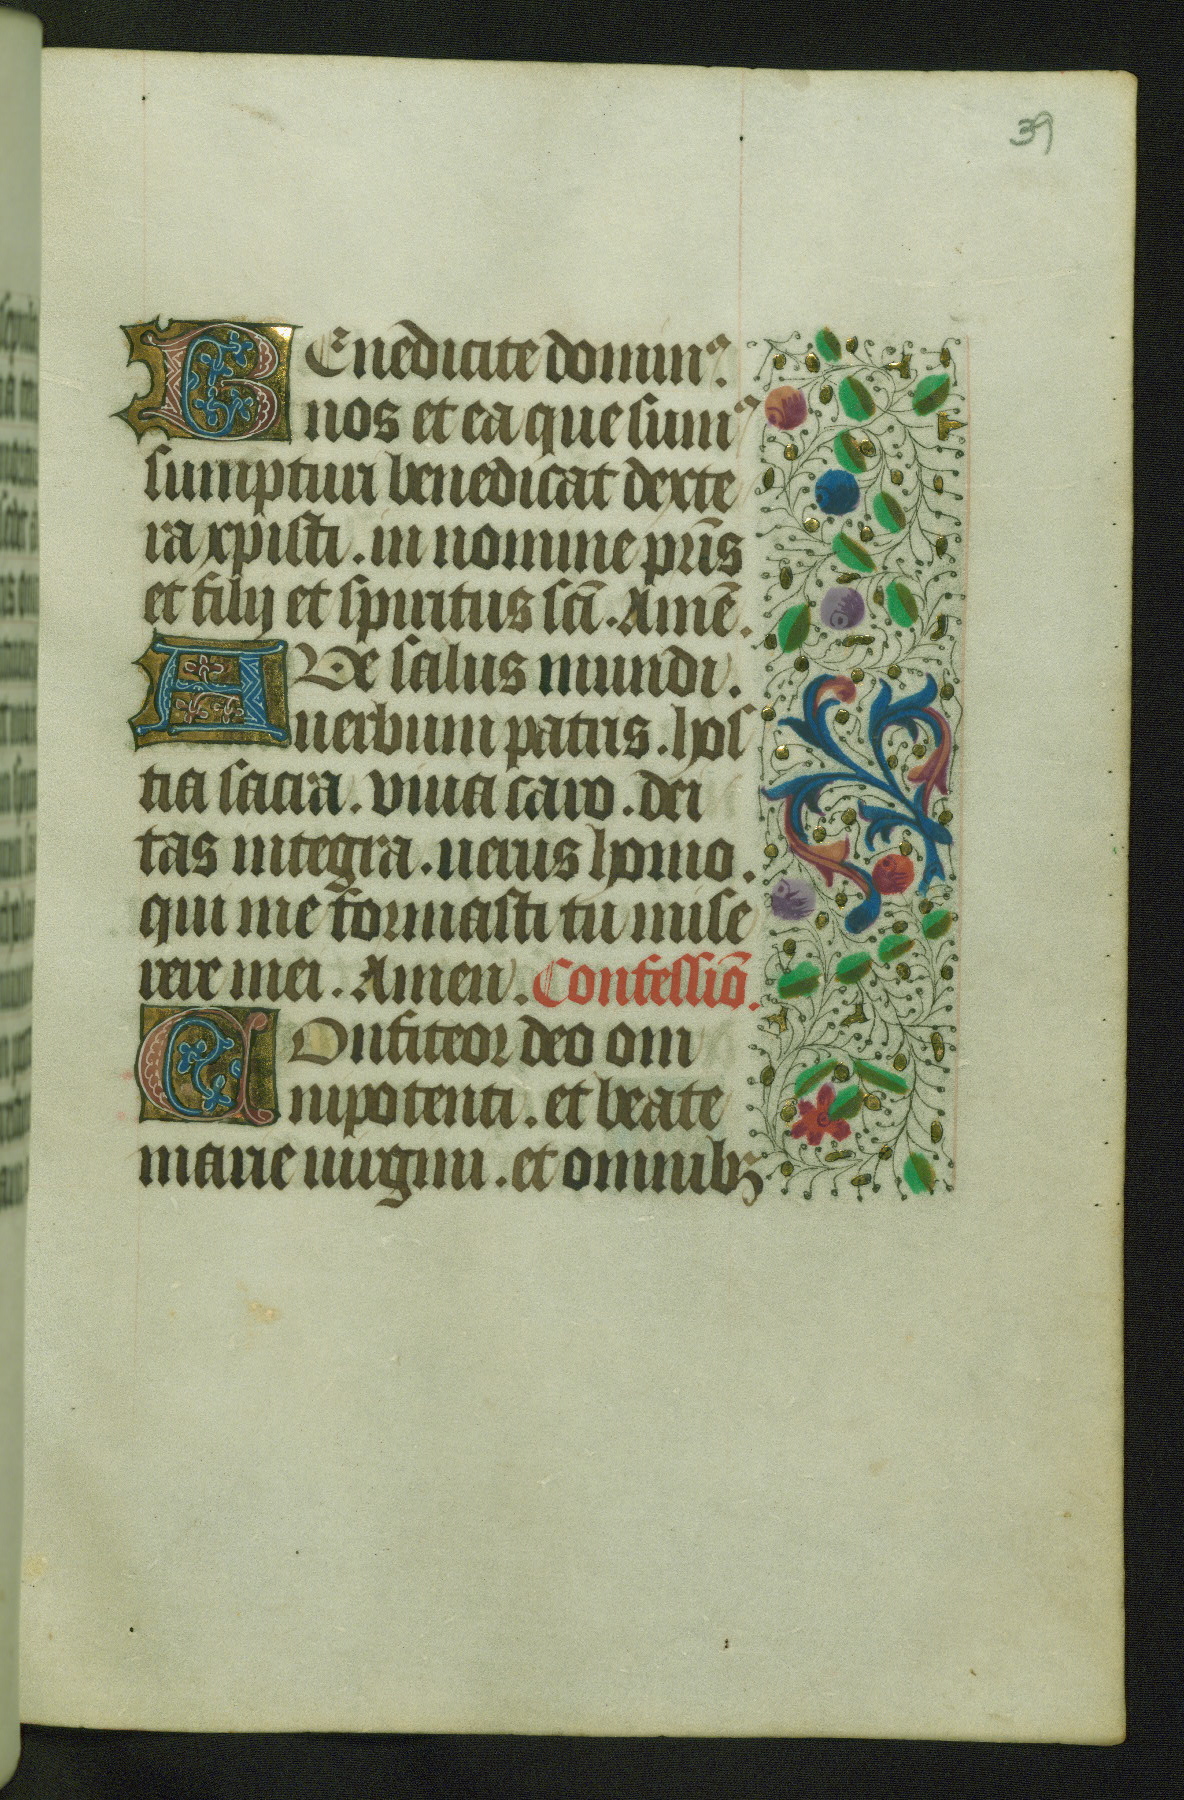 39
BEnedicite dominꝰ.
nos et ea que sumꝰ
sumpturi benedicat dexte
ra xp̄isti. in nomine pr̄is
et filij et spiritus sc̄i. Amē.
AVe salus mundi.
uerbum patris. hos
tia sacra. viua caro. dei
tas integra. uerus homo.
qui me formasti tu mise
rere mei. Amen. Confessiō.
COnfiteor deo om
nipotenti. et beate
marie uirgini. et omnibꝫ